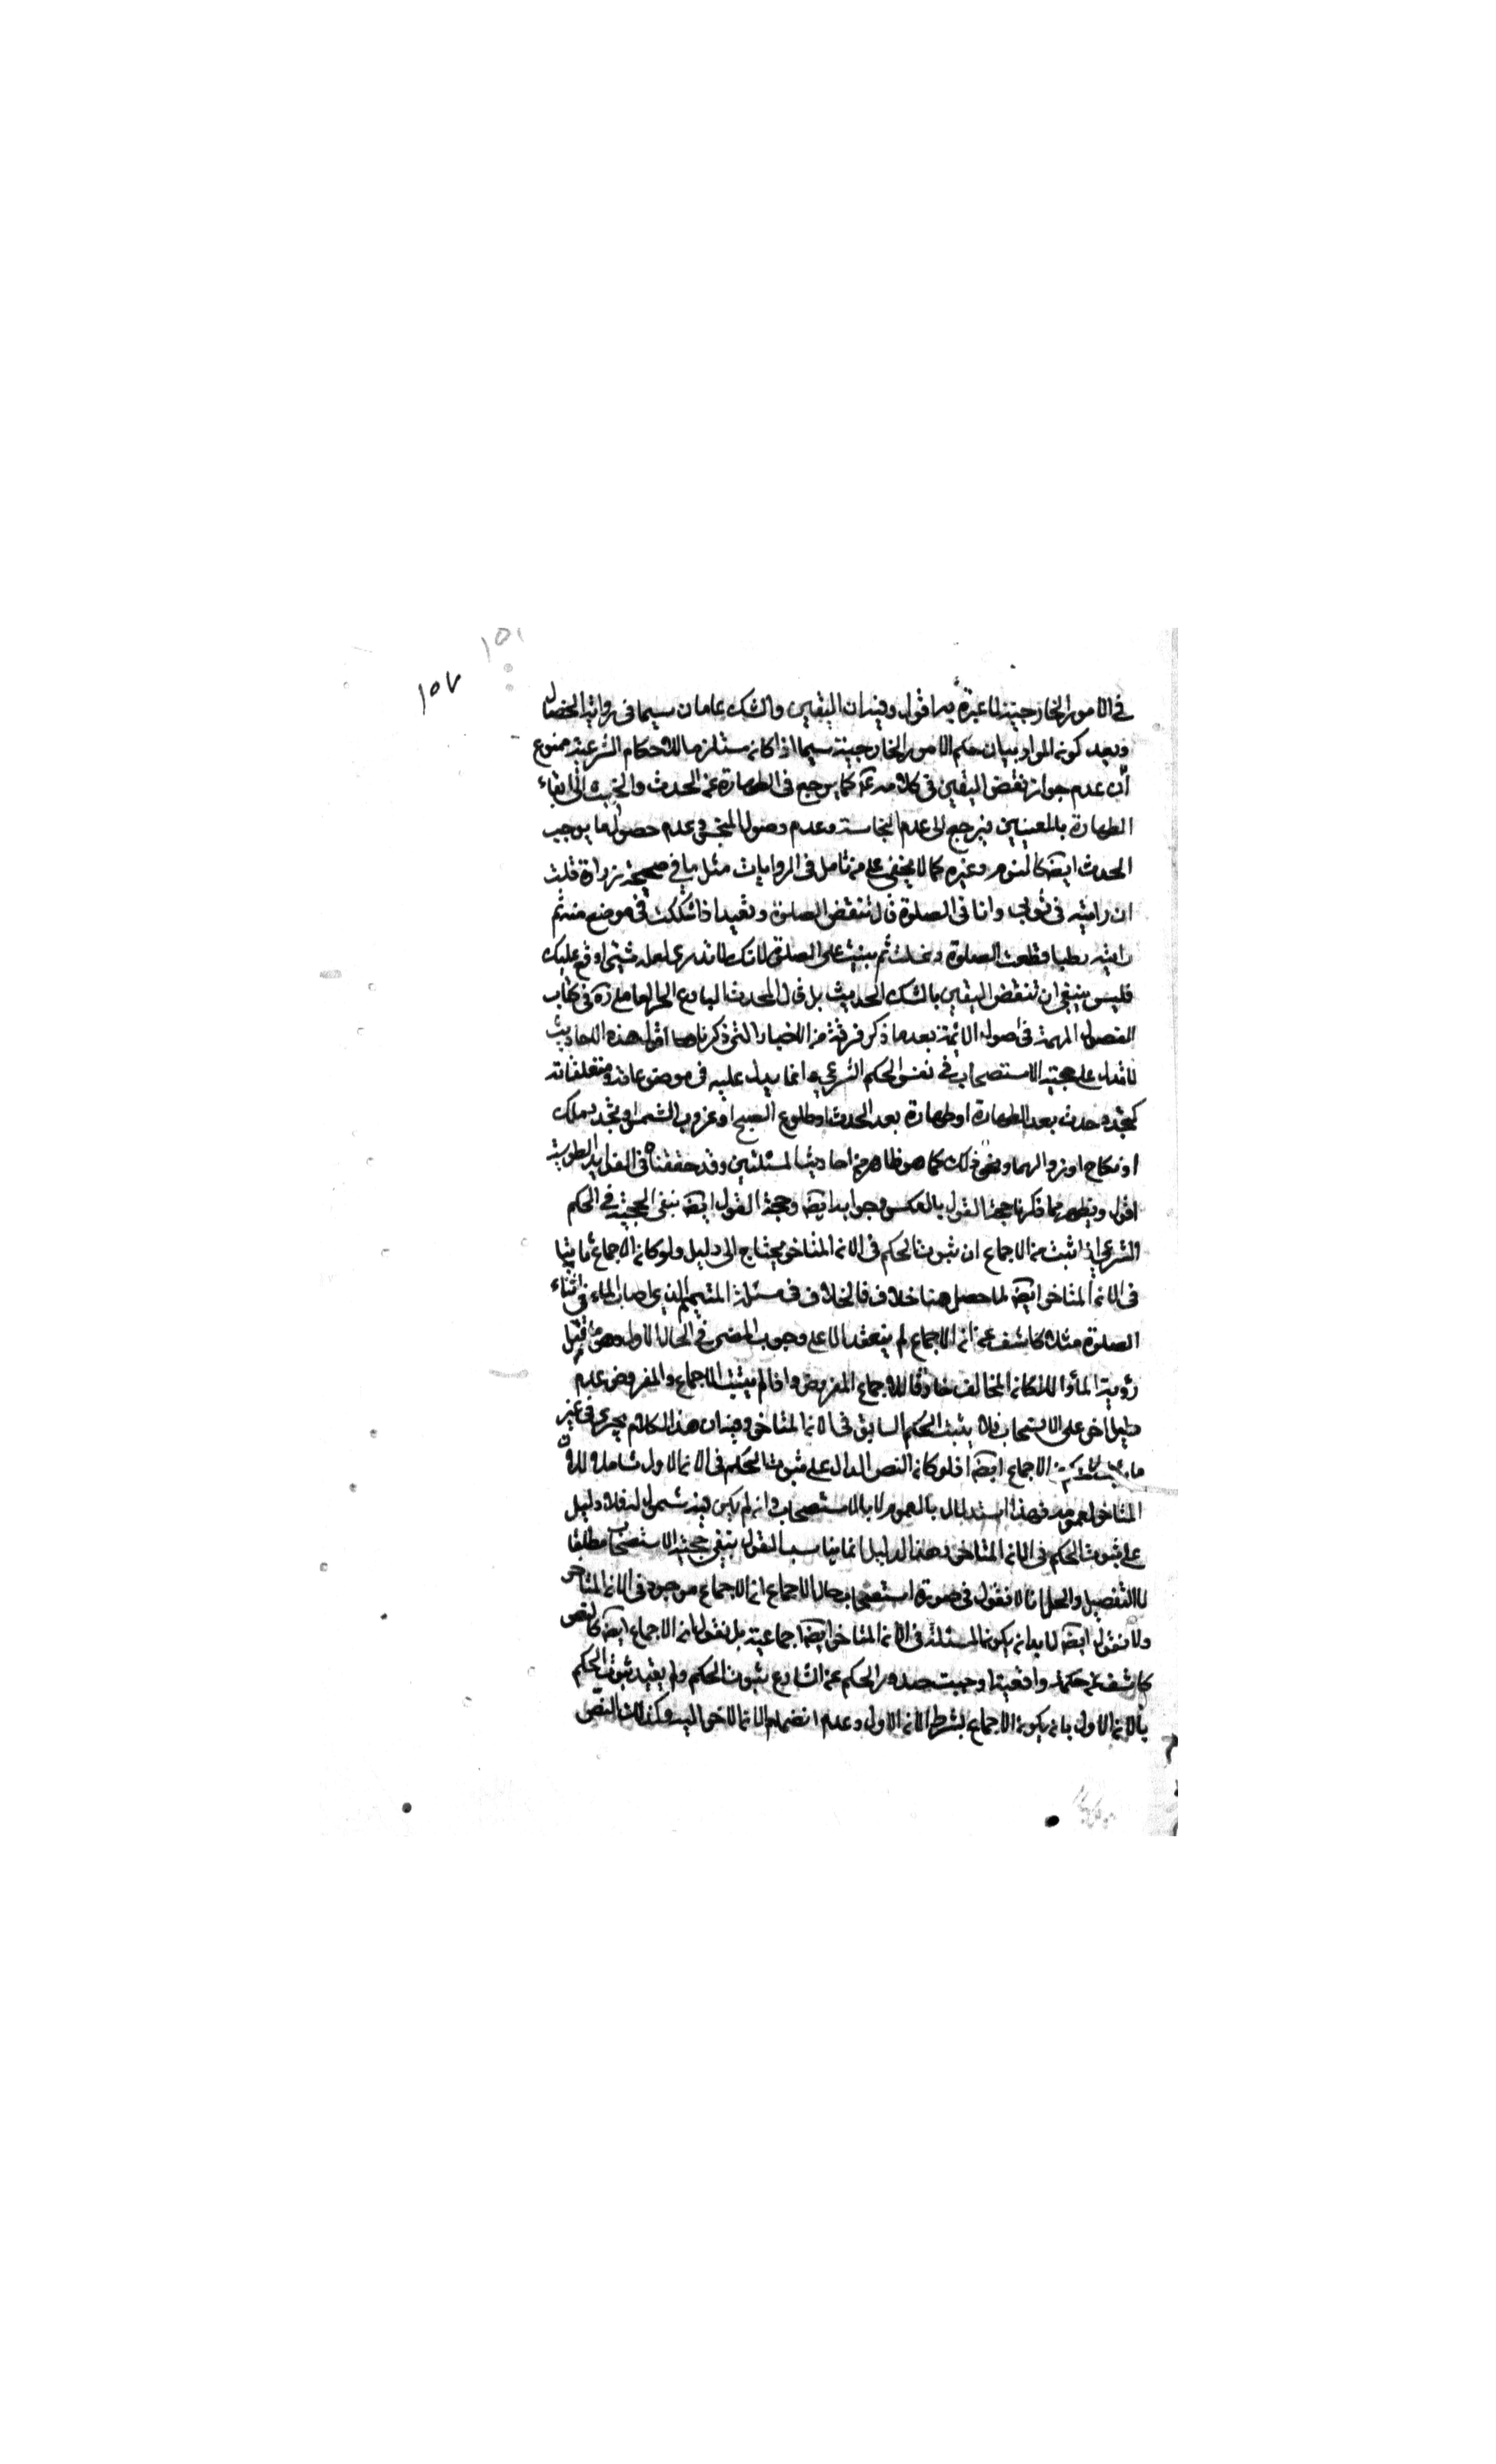 ١٥١
١٥٧
في الامور الخارجية لا عبرة به اقول وفيه ان اليقين والشك عامان سيما في رواية الخصال
وبعد كونه المراد بيان حكم الامور الخارجية سيما اذا كانه مستلزما للاحكام الشرعية ممنوع
ان عدم جواز نقض اليقين في كلامه عم كما يرجع في الطهارة عن الحدث والخبث الى بقاء
الطهارة بالمعنيين فيرجع الى عدم النجاسة وعدم وصول المنجس وعدم حصول ما يوجب
الحدث ايضا كالنوم وغيره كما لا يخفى على من تامل في الروايات مثل ما في صحيحة زرارة قلت
ان رايته في ثوبي وانا في الصلوة قال تنقض الصلوة وتعيد اذا شككت في موضع منه ثم
رايته رطبا قطعت الصلوة وغسلت ثم بنيت على الصلوة لانك لا تدري لعله شيئ اوقع عليك
فليس ينبغي ان تنقض اليقين بالشك الحديث بل قال المحدث البارع الحر العاملي ره في كتاب
الفصول المهمة في اصول الائمة بعد ما ذكر فرقة من الاخبار التي ذكرناها اقول هذه الاحاديث
لا تدل على حجية الاستصحاب في نفس الحكم الشرعي وانما يدل عليه في موضوعاته ومتعلقاته
كتجدد حدث بعد الطهارة او طهارة بعد الحدث او طلوع الصبح او غروب الشمس او تجدد ملك
او نكاح او زوالهما ونحو ذلك كما هو ظاهر من احاديث المسئلتين وقد حققناه في الفوائد الطوسية
اقول ويظهر مما ذكرنا حجة القول بالعكس وجوابه ايضا وحجة القول ايضا بنفي الحجية في الحكم
الشرعي اذا ثبت من الاجماع ان ثبوت الحكم في الانه المتاخر يحتاج الى دليل ولو كانه الاجماع ثابتا
في الانه المتاخر ايضا لما حصل هنا خلاف فالخلاف في مسئلة المتيمم الذي اصاب الماء في اثناء
الصلوة مثلا كاشف عن انه الاجماع لم ينعقد الا على وجوب المضي في الحال الاول وهو ما قبل
رؤية الماء والا لكانه المخالف خارقا للاجماع المفروض واذا لم يثبت الاجماع والمفروض عدم
دليل اخر على الاستصحاب فلا يثبت الحكم السابق في الانه المتاخر وفيه ان هذا الكلام يجري في غير
الاجماع ايضا اذ لو كانه النص الدال على ثبوت الحكم في الانه الاول شاملا للانه
المتاخر لعمومه فهذا استدلال بالعموم لا بالاستصحاب وانه لم يكن فيه شمول له فلا دليل
على ثبوت الحكم في الانه المتاخر وهذا الدليل انما يناسب القول بنفي حجية الاستصحاب مطلقا
لا التفصيل والحل انا لا نقول في صورة استصحاب حال الاجماع انه الاجماع موجود في الانه المتاخر
ولا نقول ايضا لا بد انه يكون المسئلة في الانه المتاخر ايضا اجماعية بل نقول انه الاجماع ايضا كالنص
كاشف عن حكمة واقعية اوجبت صدور الحكم عن الشارع ثبوت الحكم ولم يقيد ثبوت الحكم
بالانه الاول بانه يكونه الاجماع بشرط الانه الاول وعدم انضمام الانه الاخر اليه وكذلك النص